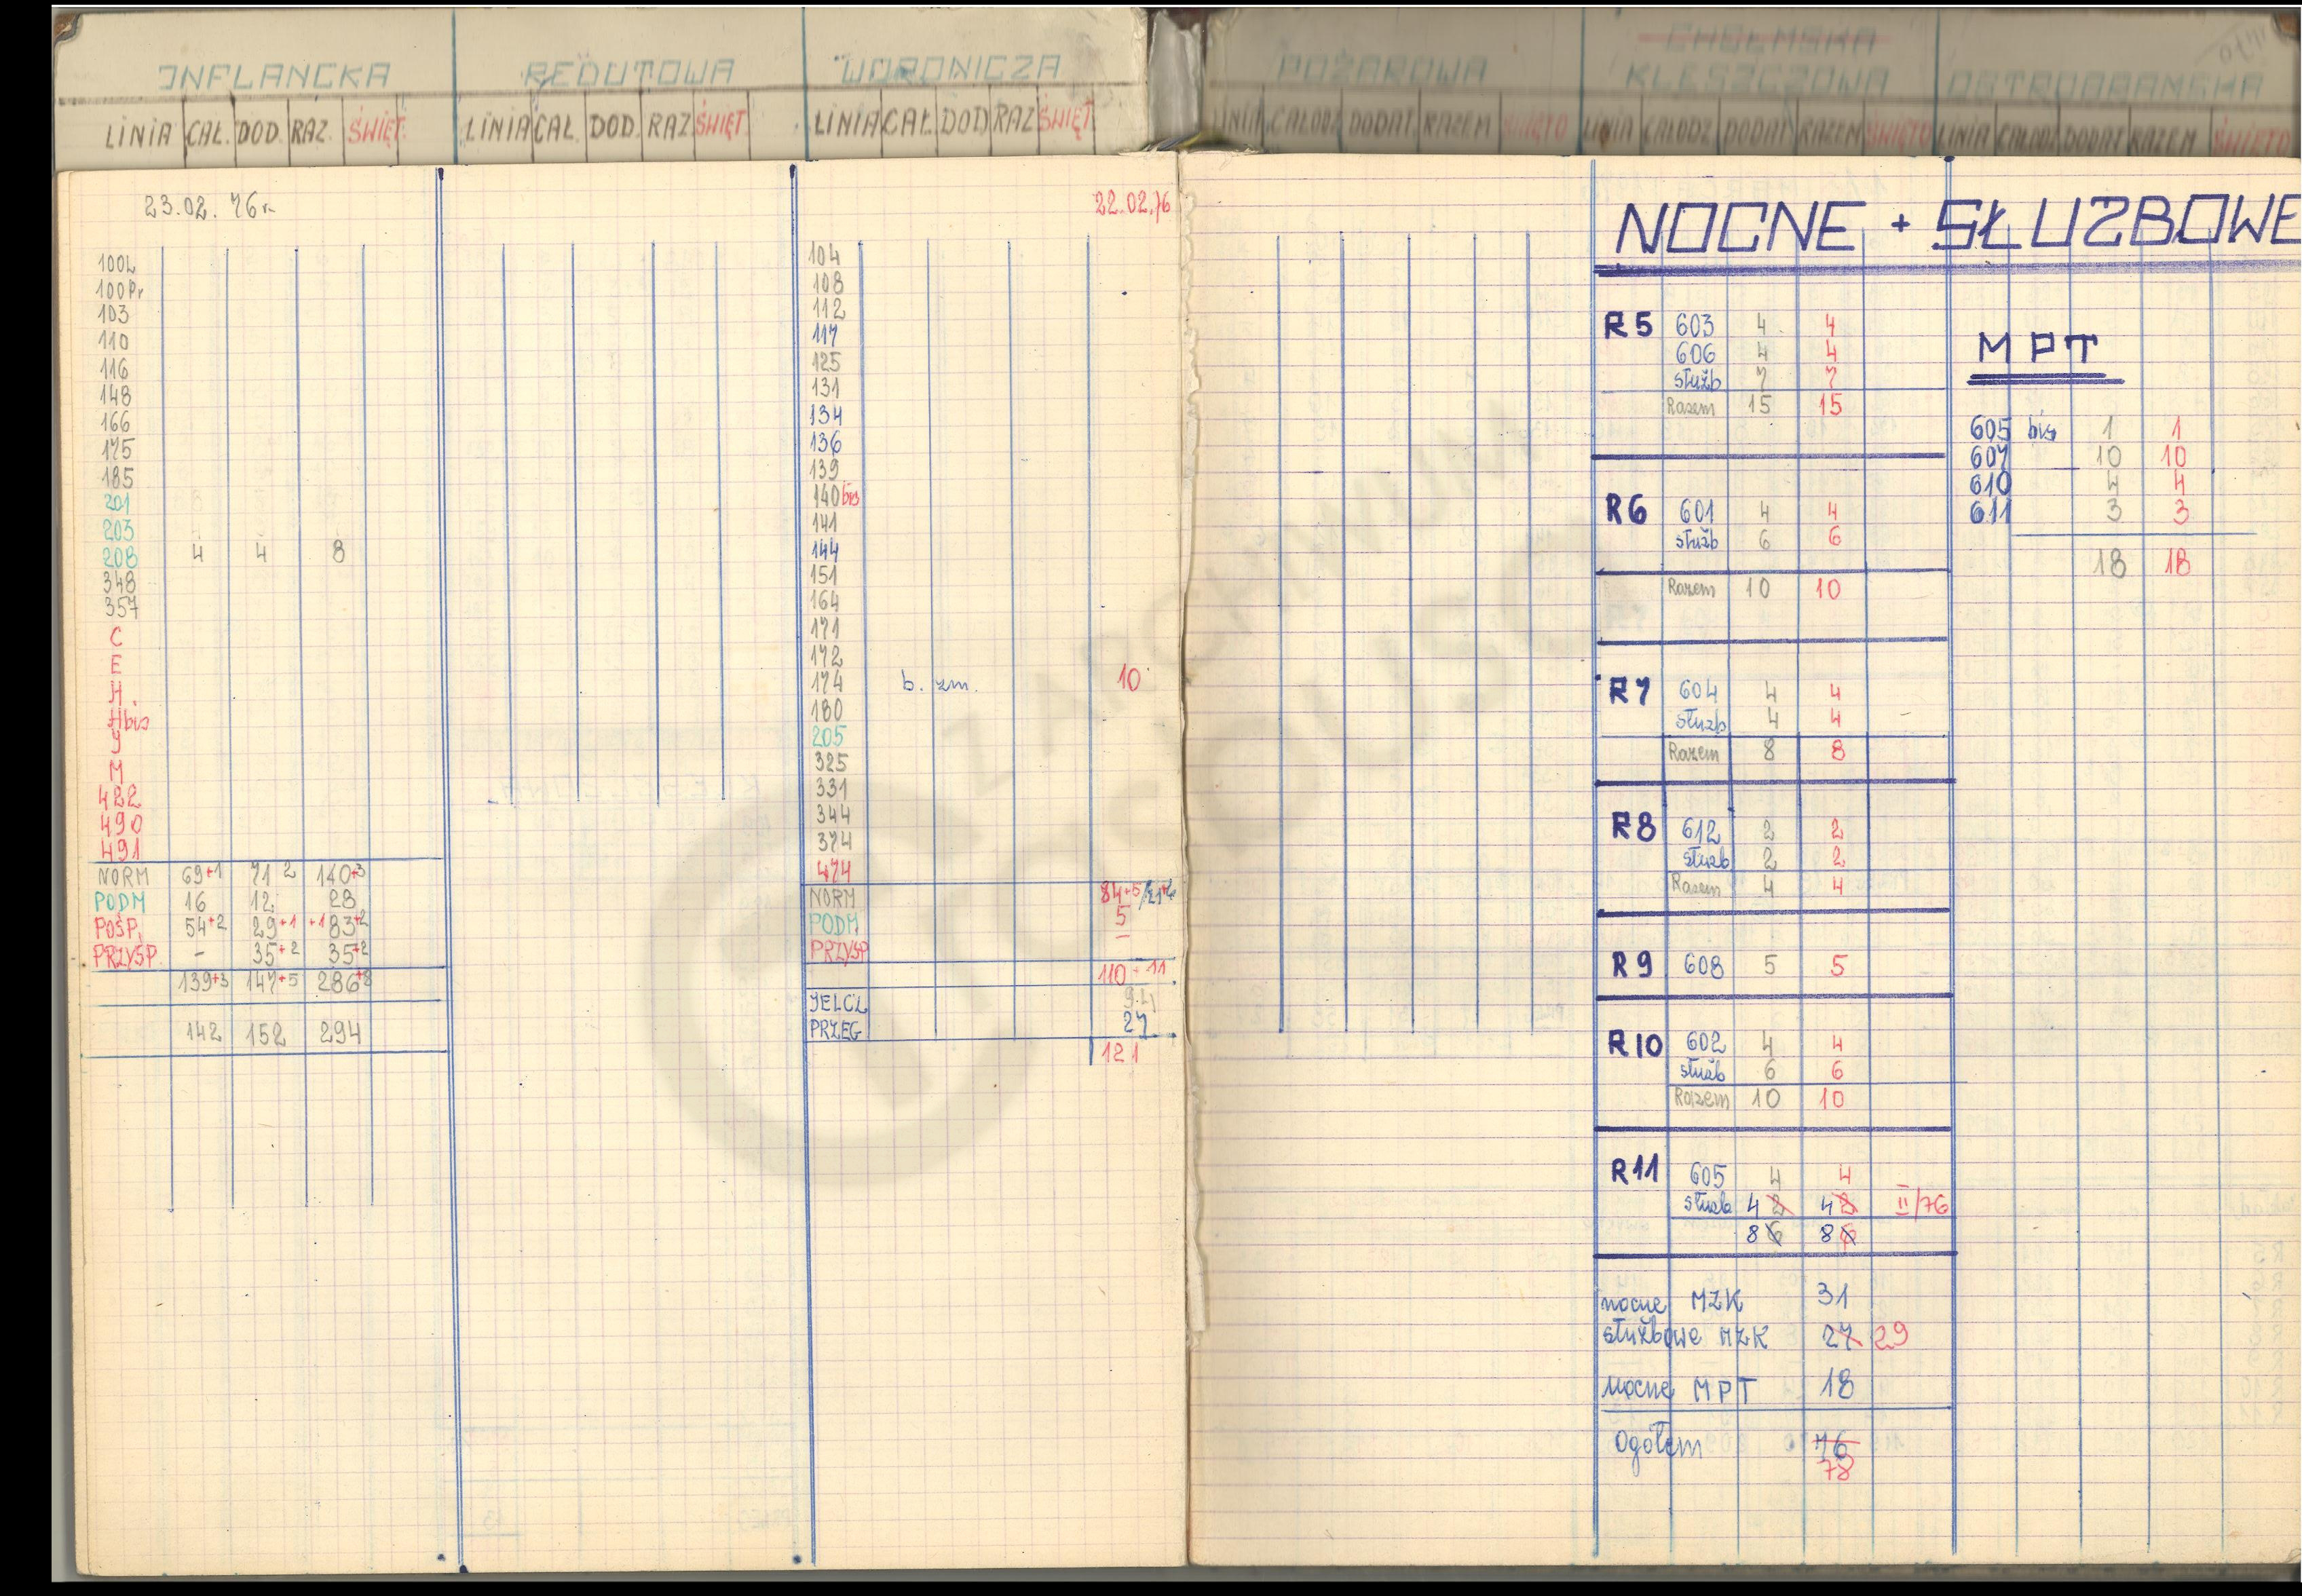 INFLANCKA REDUTOWA WORONICZA POŻAROWA CHEŁMSKA KLESZCZOWA OSTROBRAMSKA
LINIA CAŁ. DOD. RAZ. ŚWIĘT. LINIA CAŁ. DOD. RAZ ŚWIĘT. LINIA CAŁ. DOD RAZ ŚWIĘT.
LINIA CAŁODZ DODAT RAZEM ŚWIĘTO LINIA CAŁODZ DODAT RAZEM ŚWIĘTO LINIA CAŁODZ DODAT RAZEM ŚWIĘTO
23.02.76r
100L
100Pr
103
110
116
148
166
175
185
201
203
208 4 4 8
348
357
C
E
H
Hbis
J
M
422
490
491
NORM 69+1 71 2 140+3
PODM 16 12 28
POŚP. 54+2 29+1 +1 83+2
PRZYSP. - 35+2 35+2
139+3 147+5 286+8
142 152 294
22.02.76
104
108
112
117
125
131
134
136
139
140 bis
141
144
151
164
171
172
174 b. zm. 10
180
205
325
331
344
374
474
NORM 84+5
PODM 5
PRZYSP -
110+11
JELCZ 94
PRZEG 27
121
NOCNE + SŁUŻBOWE
R5 603 4 4
606 4 4
służb 7 7
Razem 15 15
R6 601 4 4
służb 6 6
Razem 10 10
R7 604 4 4
służb 4 4
Razem 8 8
R8 612 2 2
służb 2 2
Razem 4 4
R9 608 5 5
R10 602 4 4
służb 6 6
Razem 10 10
R11 605 4 4
służb 4 2 4 2 II/76
8 6 8 6
nocne MZK 31
służbowe MZK 27 29
nocne MPT 18
Ogółem 76
78
MPT
605 bis 1 1
607 10 10
610 4 4
611 3 3
18 18